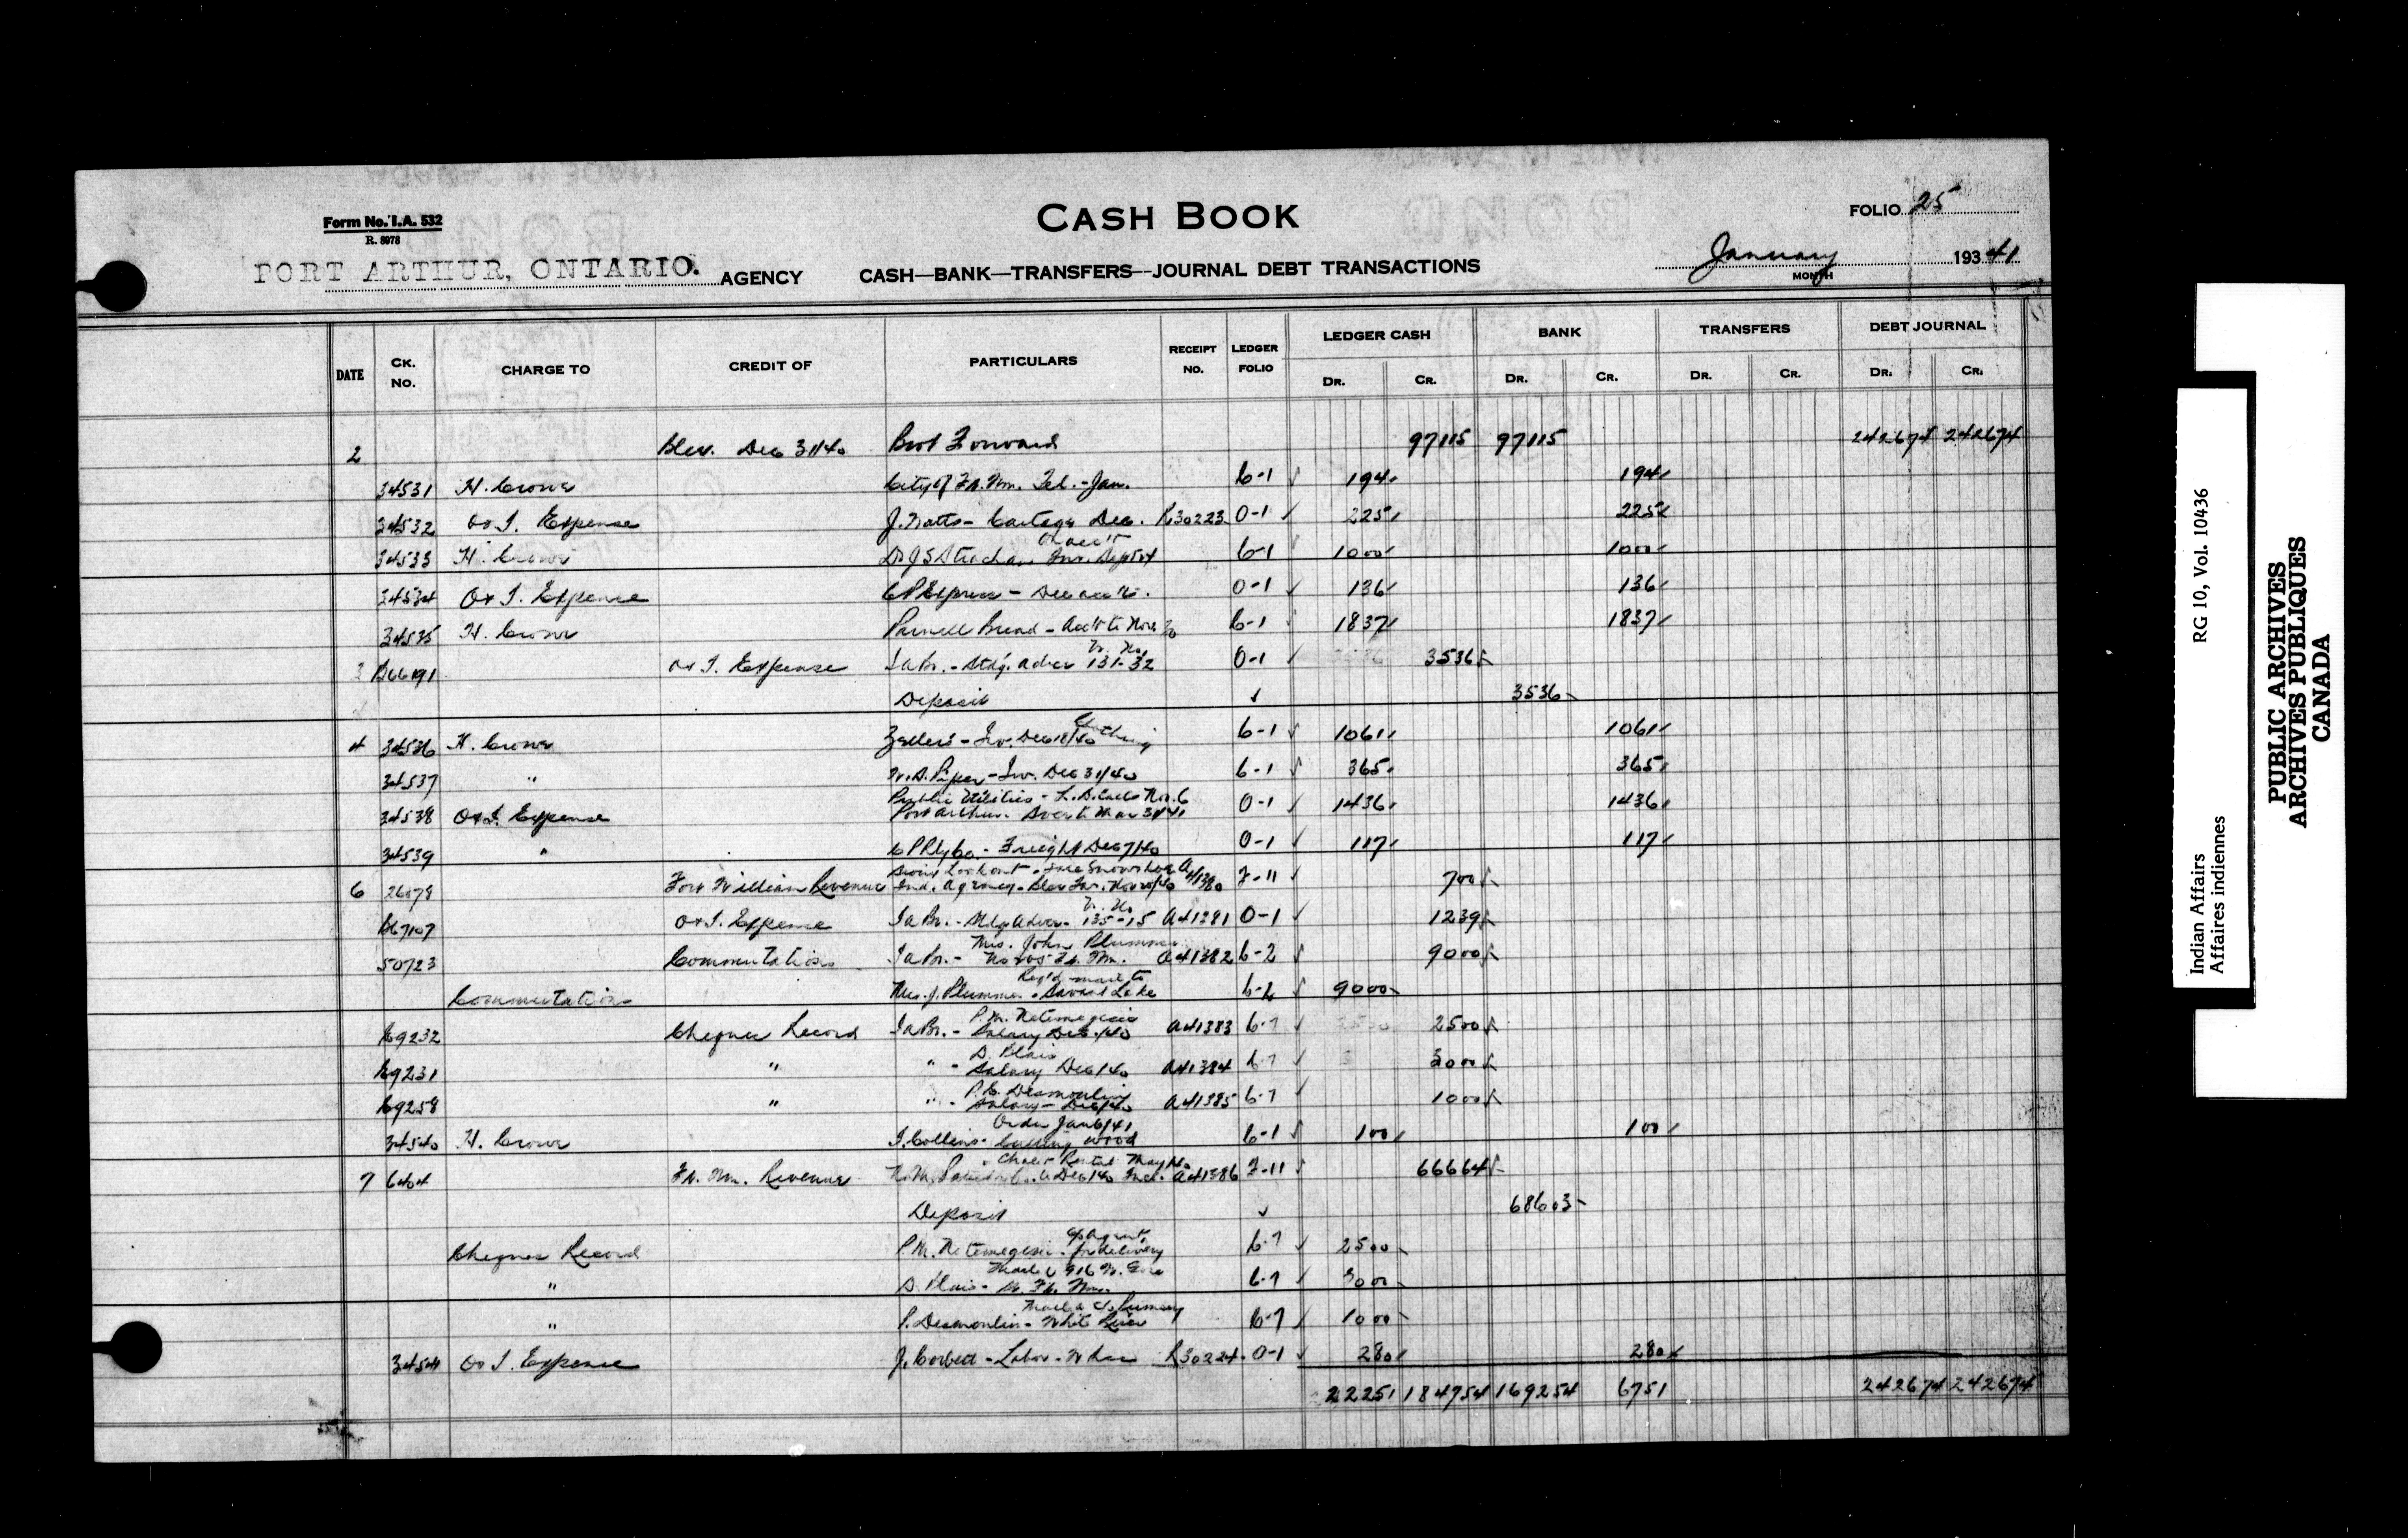 CASH BOOK
FOLIO 25
Form No. I.A. 532
R. 8978
PORT ARTHUR, ONTARIO. AGENCY
CASH—BANK—TRANSFERS—JOURNAL DEBT TRANSACTIONS
January 1941
MONTH
DATE CK. NO. CHARGE TO CREDIT OF PARTICULARS RECEIPT NO. LEDGER FOLIO LEDGER CASH BANK TRANSFERS DEBT JOURNAL
DR. CR. DR. CR. DR. CR. DR. CR.
2 Dec 31/40 Brot Forward 97115 97115 242674 242674
34531 H. City of Ft. Wm. Tel. - Jan. 6-1 194 194
34532 O & I. Expense J. Watts - Cartage Dec. K30223 0-1 225 225
On acc't
34533 H. Dr J S Strachan Inv. 6-1 1000 1000
34534 O & I. Expense C P Express - Dec acc't. 0-1 136 136
34535 H. Parnell Bread - Acc't to Nov 30 6-1 1837 1837
3 B66191 O & I. Expense 131-32 0-1 3536
Deposit 3536
Clothing
4 34536 H. Zellers - Inv. Dec 18/40 6-1 1061 1061
34537 " W. S. Piper - Inv. Dec 31/40 6-1 365 365
Public Utilities - L. D. Calls Nov. 6
34538 O & I. Expense Port Arthur. to Mar 31/41 0-1 1436 1436
34539 " C P Ry Co. - Freight Dec 7/40 0-1 117 117
Sioux Lookout -
6 26078 Fort William Revenue Ind. Agency - Inv. A41380 7-11 700
B67107 O & I. Expense 135-15 A41381 0-1 1239
Mrs. John Plummer
50723 Commutation Ft. Wm. A41382 6-2 9000
Reg'd mail to
Commutation Mrs. J. Plummer - Savant Lake 6-2 9000
P. M. Netemegesic
69232 Cheques Record Salary Dec/40 A41383 6-7 2500
D. Blais
69231 " " - Salary Dec/40 A41384 6-7 3000
P. C. Desmoulin
69258 " " - Salary - Dec/40 A41385 6-7 1000
Order Jan 6/41
34540 H. I. Collins - Cutting wood 6-1 100 100
Rental May/40
7 6404 Ft. Wm. Revenue to Dec/40 Incl. A41386 7-11 66664
Deposit 68603
c/o Agent
Cheques Record P. M. Netemegesic - for delivery 6-7 2500
Mailed 916
" D. Blais - Ft. Wm. 6-7 3000
Mailed
" P. Desmoulin - White River 6-7 1000
34541 O & I. Expense J. Corbett - Labor - K30224 0-1 280 280
22251 184754 169254 6751 242674 242674
Indian Affairs RG 10, Vol. 10436
Affaires indiennes
PUBLIC ARCHIVES
ARCHIVES PUBLIQUES
CANADA